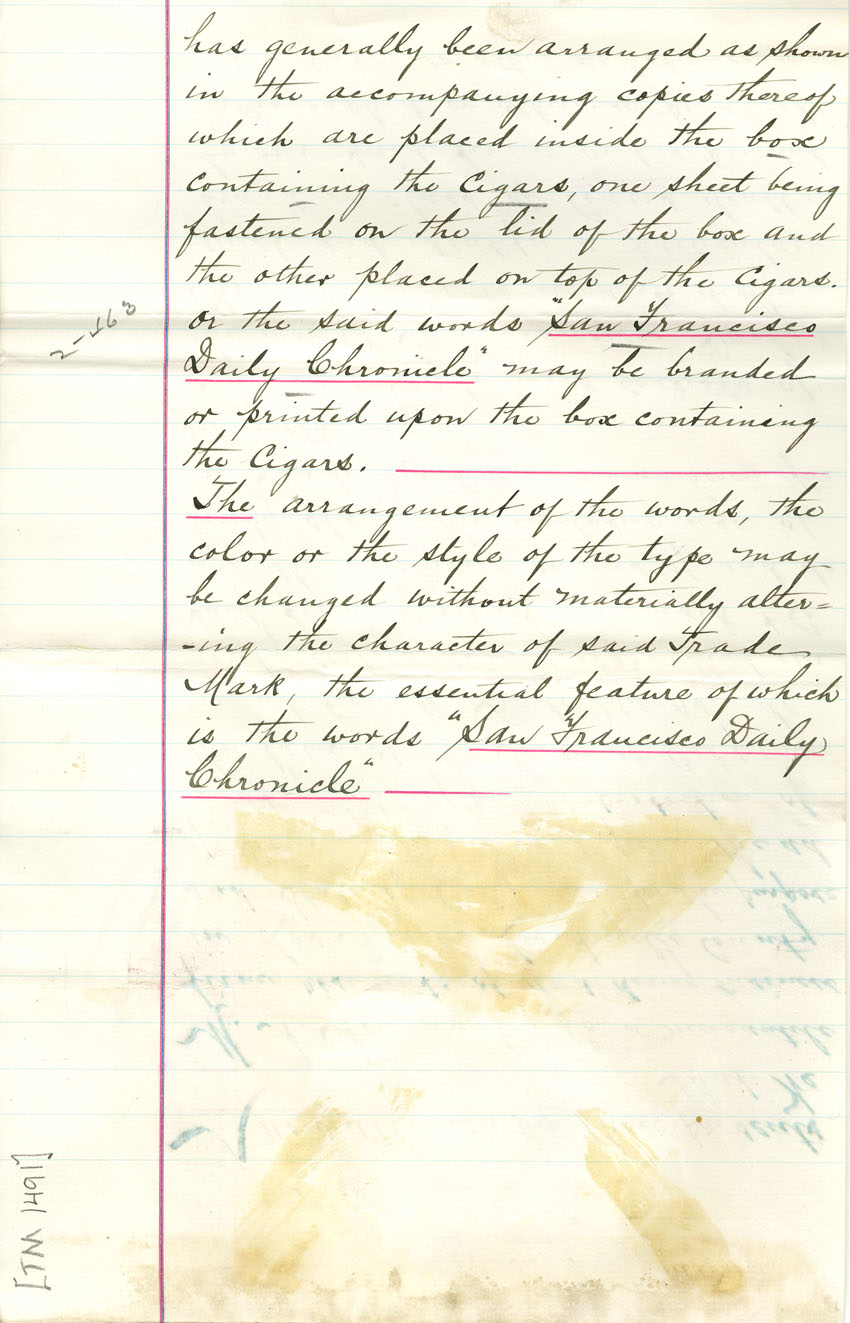 has generally been arranged as shown
in the accompanying copies thereof
which are placed inside the box
containing the Cigars, one sheet being
fastened on the lid of the box and
the other placed on top of the Cigars.
or the said words "San Francisco
Daily Chronicle" may be branded
or printed upon the box containing
the Cigars.
The arrangement of the words, the
color or the style of the type may
be changed without materially alter=
-ing the character of said Trade
Mark, the essential feature of which
is the words "San Francisco Daily
Chronicle"
2-163
[TM 1491]